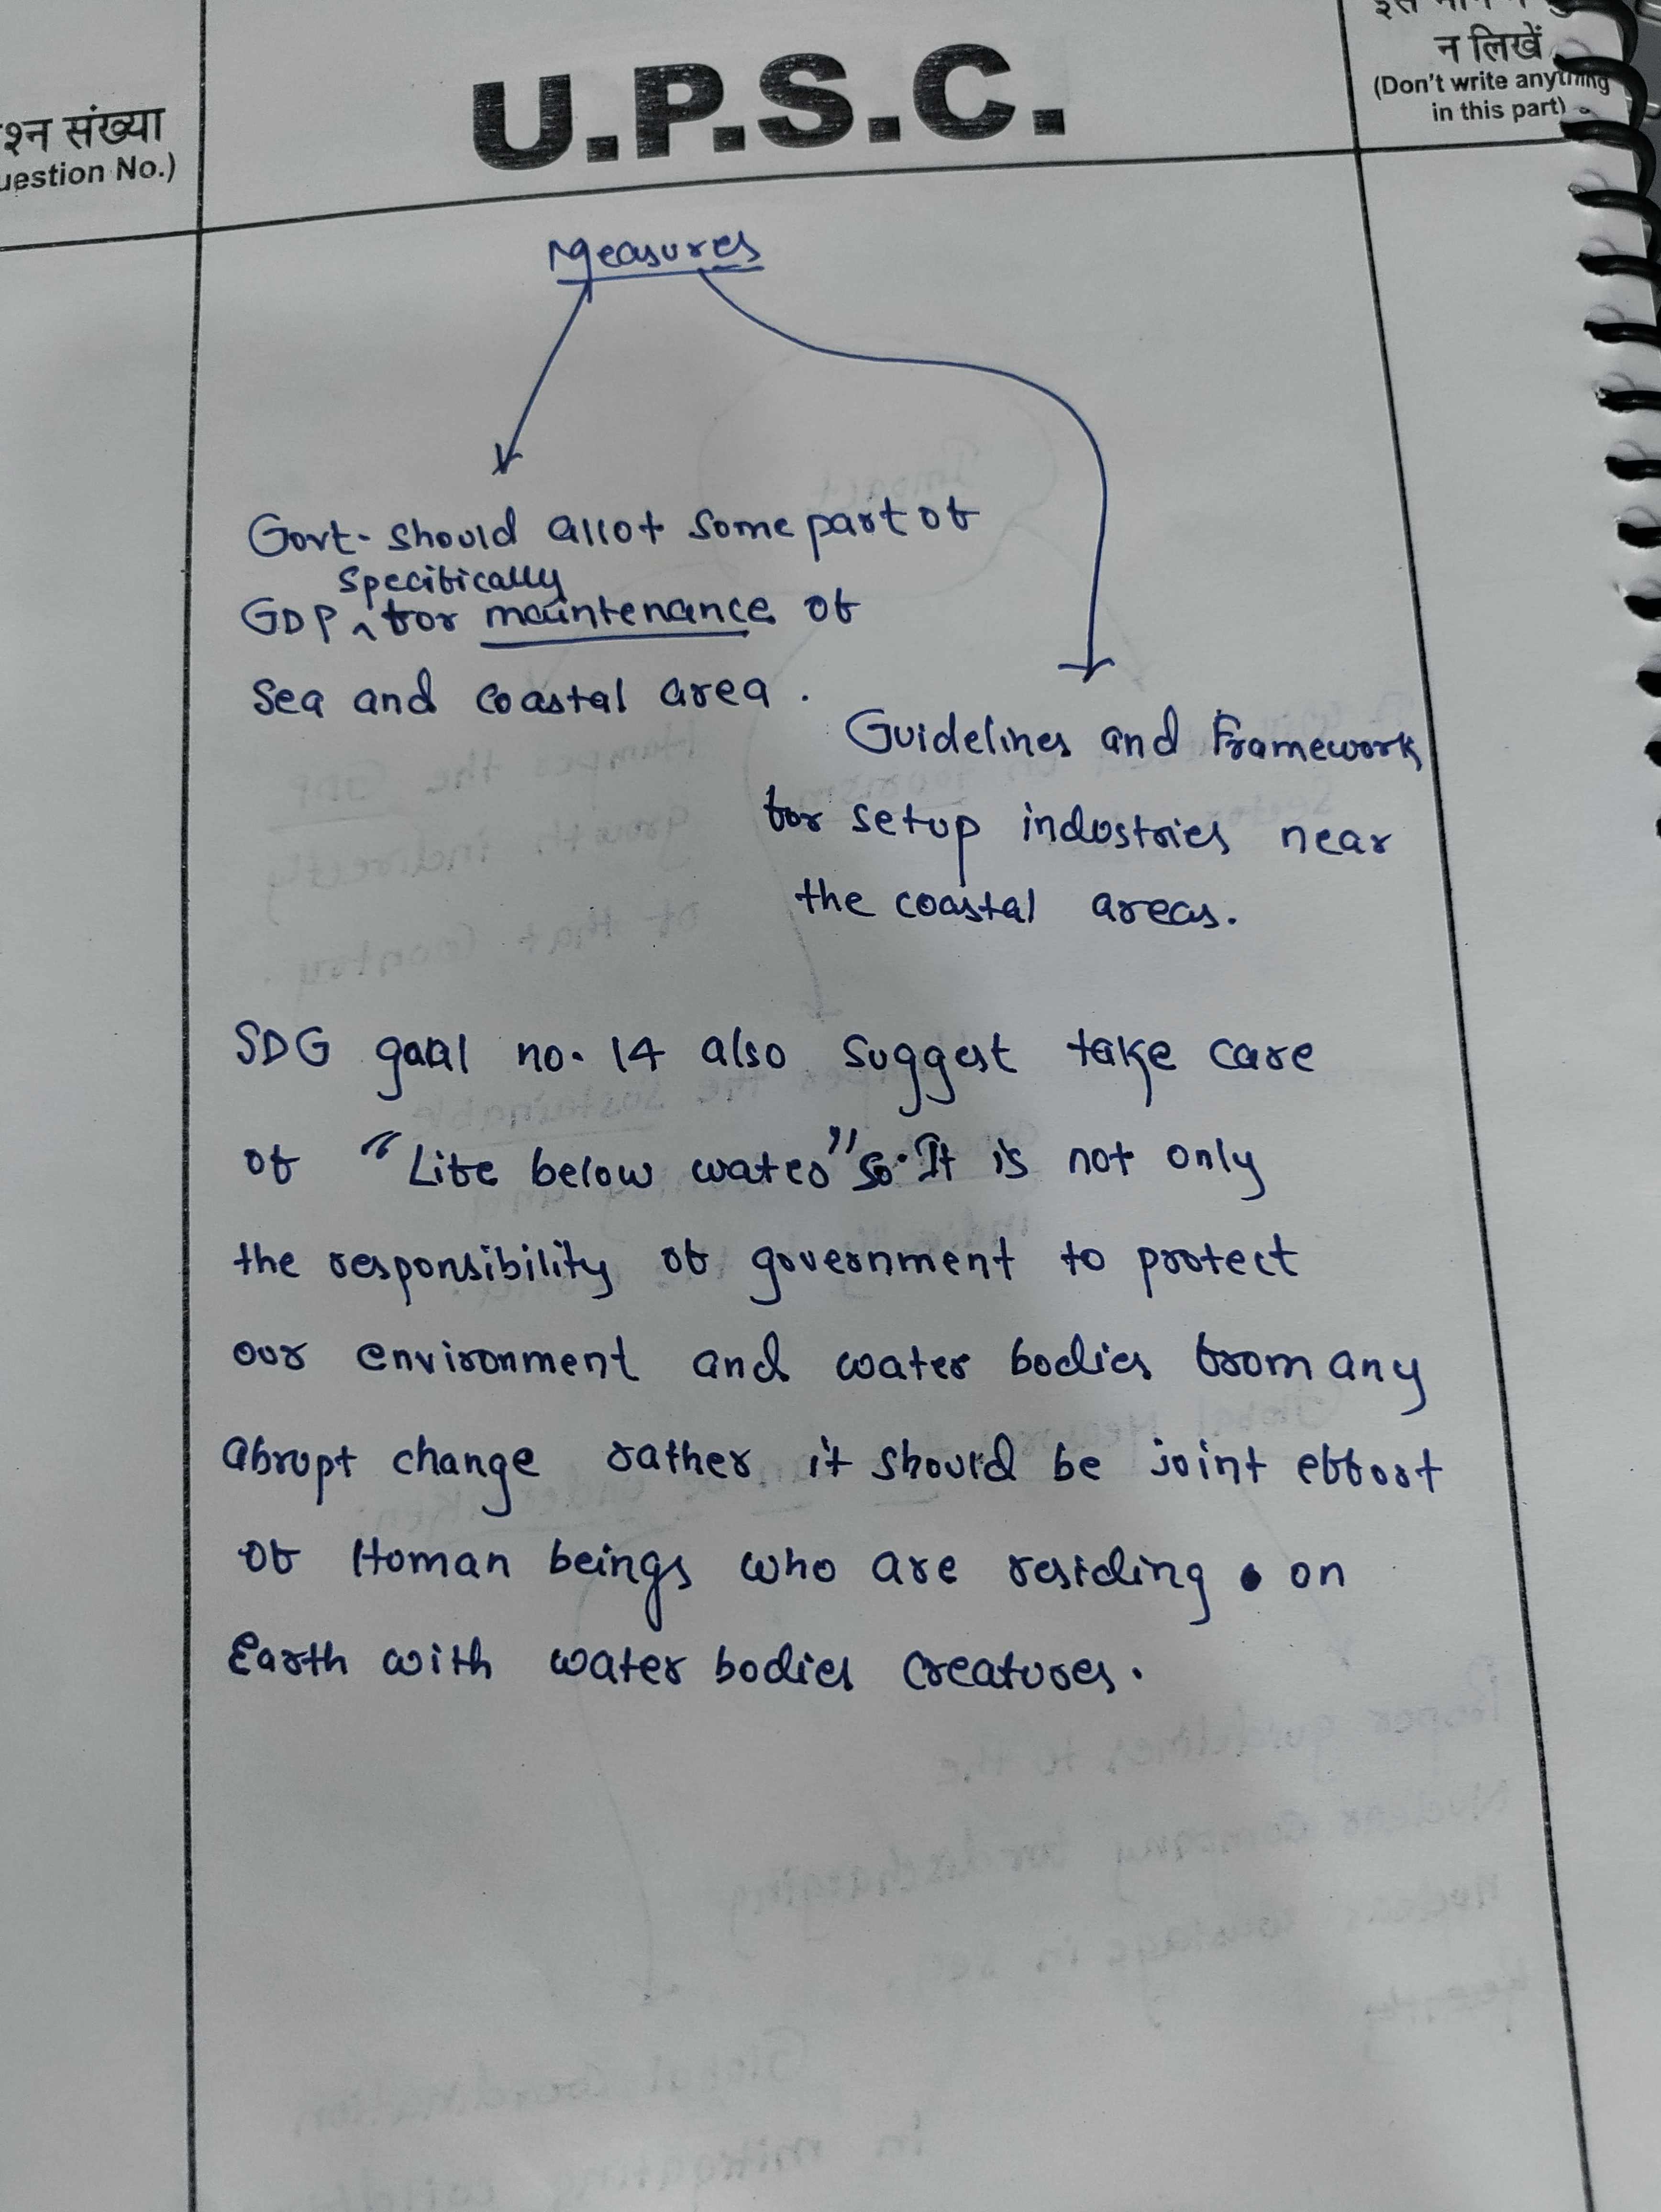 श्न संख्या
uestion No.)
U.P.S.C.
न लिखें
(Don't write anything
in this part)
Measures
Govt. should allot some part of
specifically
GDP ^ for maintenance of
Sea and coastal area.
Guidelines and Framework
for setup industries near
the coastal areas.
SDG goal no. 14 also suggest take care
of "Life below water" so. It is not only
the responsibility of government to protect
our environment and water bodies from any
abrupt change rather it should be joint effort
of Human beings who are residing on
Earth with water bodies creatures.